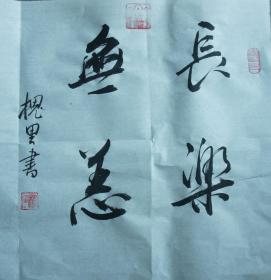 長樂
無恙
槐里書